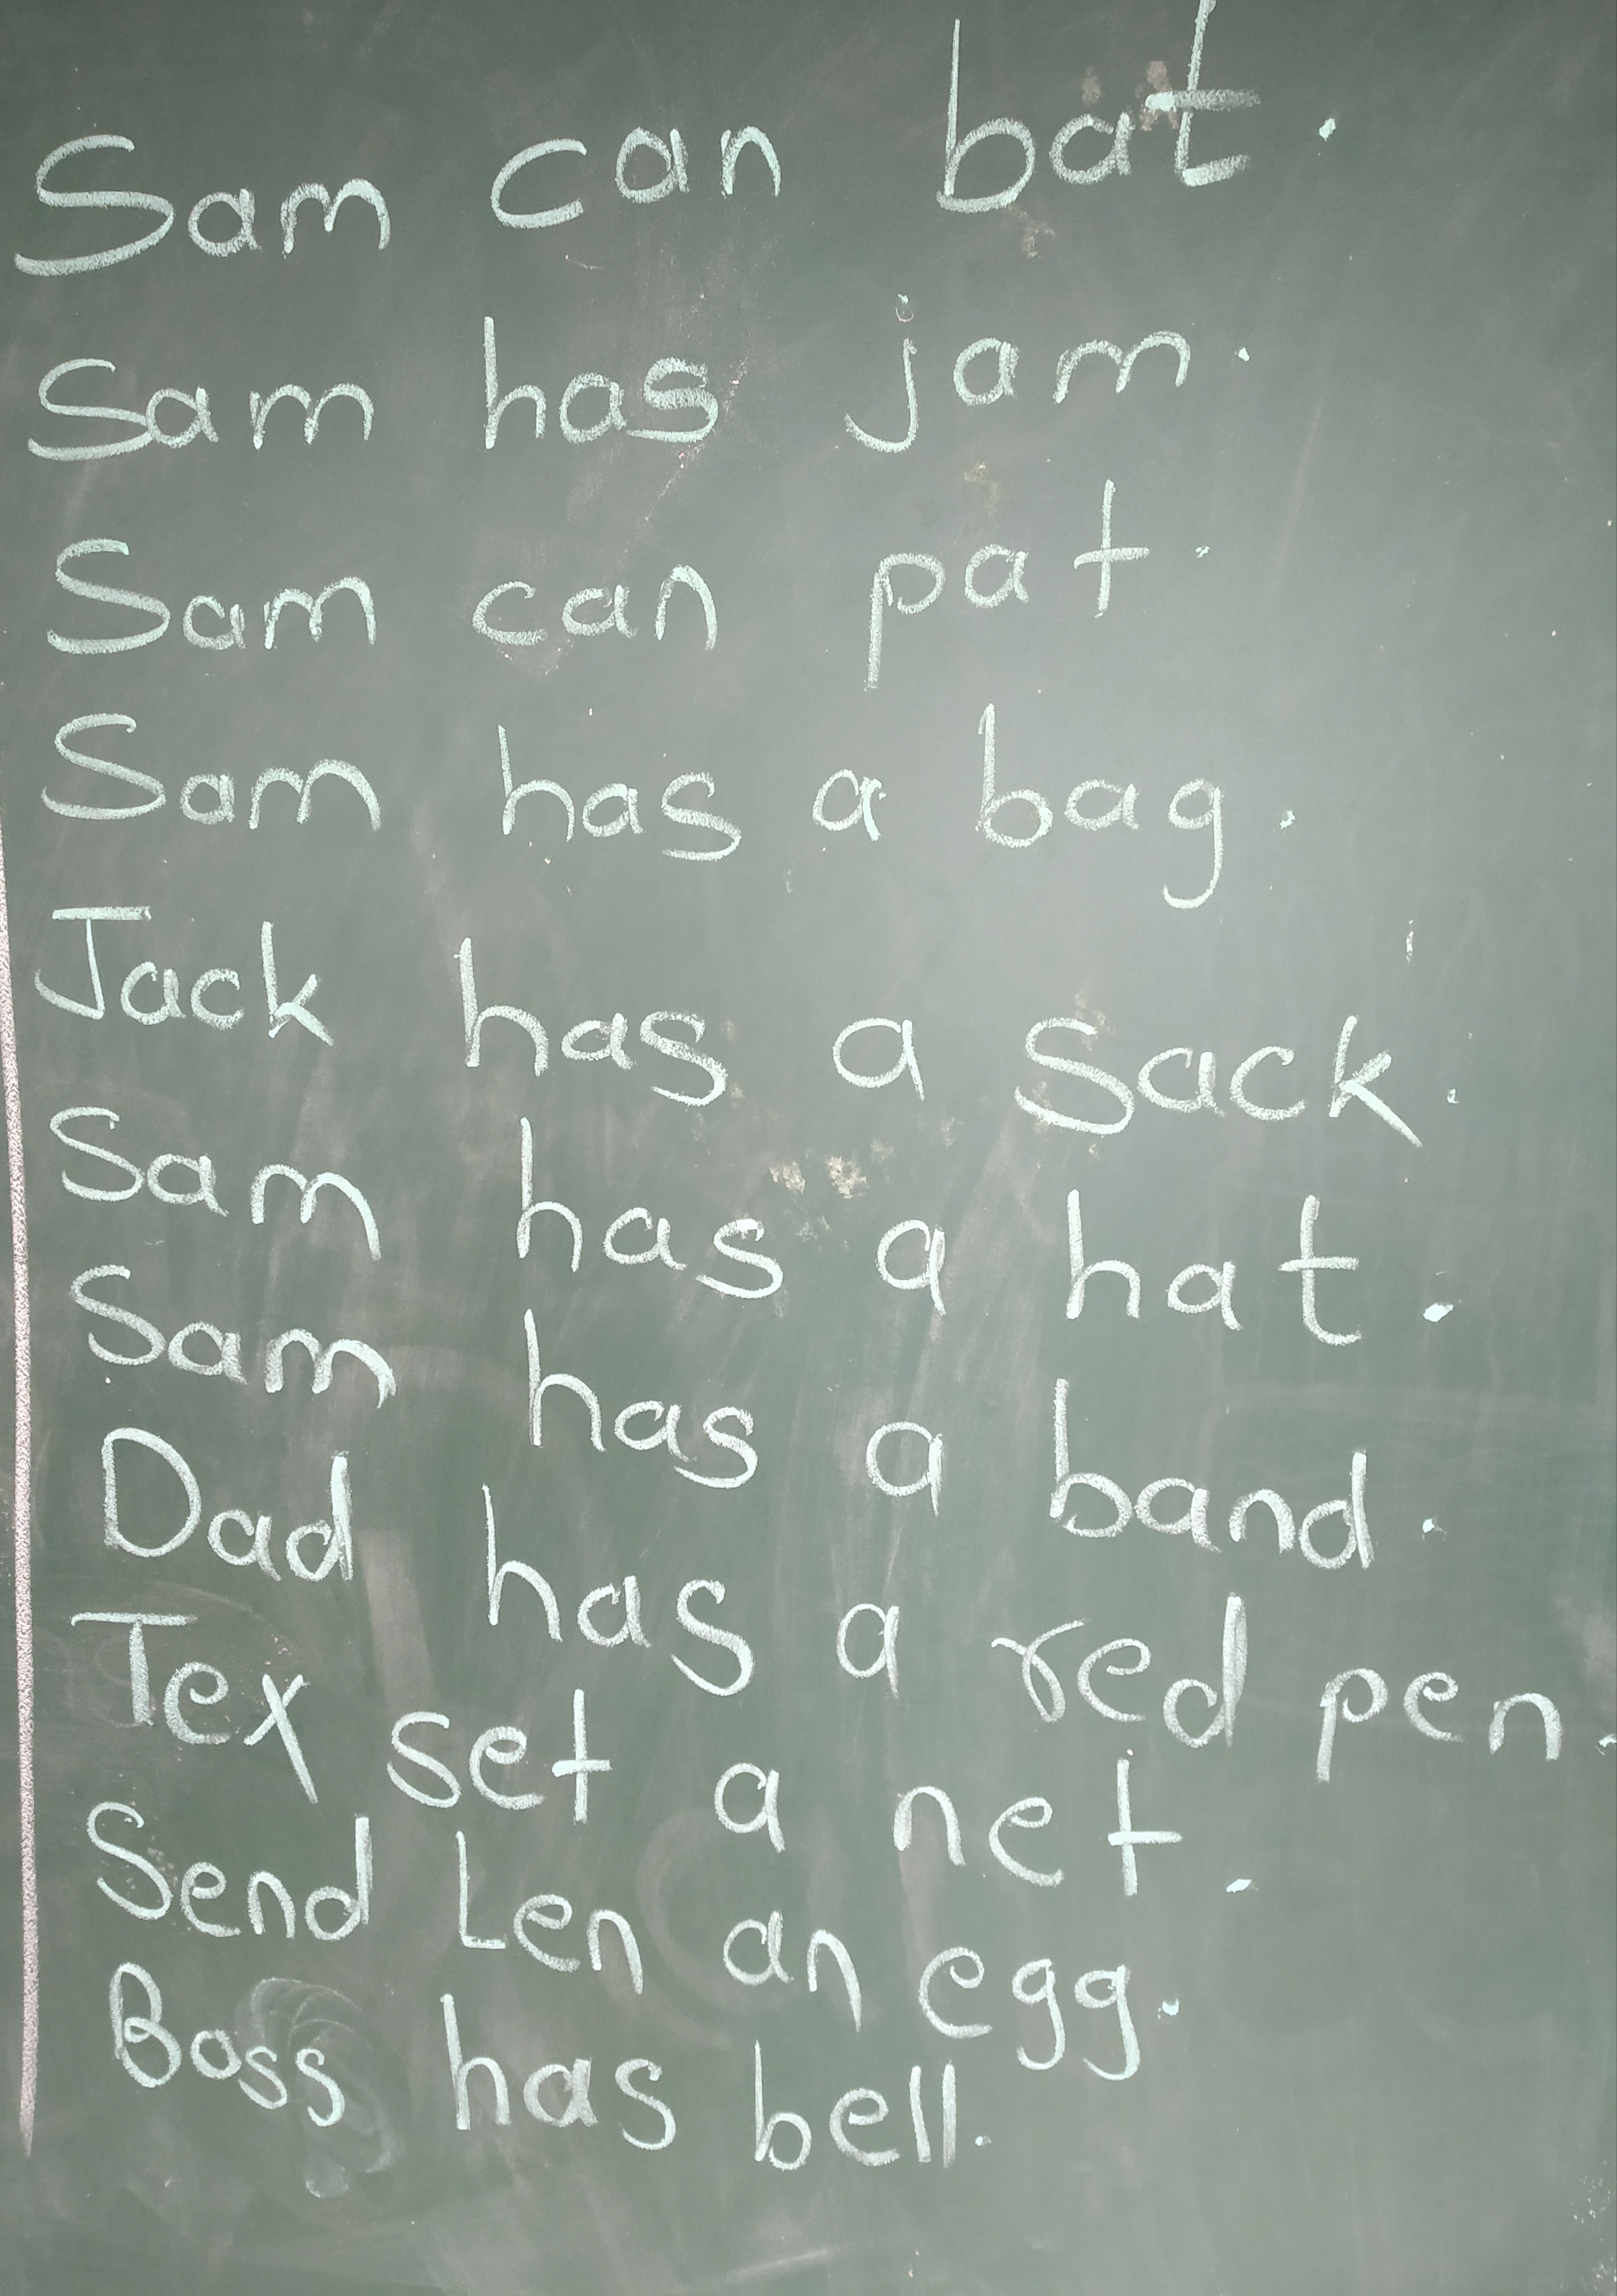 Sam can bat.
Sam has jam.
Sam can pat.
Sam has a bag.
Jack has a sack.
Sam has a hat.
Sam has a band.
Dad has a red pen.
Tex set a net.
Send Len an egg.
Boss has bell.